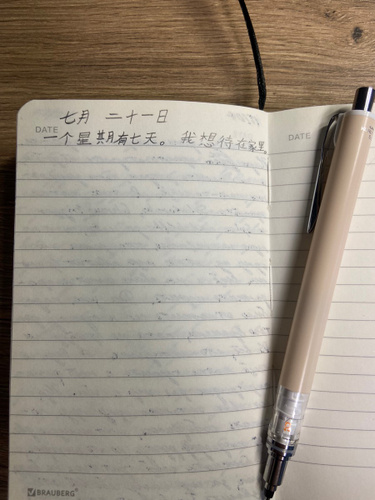 七月 二十一日
DATE
一个星期有七天。 我想待在家里。
DATE
BRAUBERG®